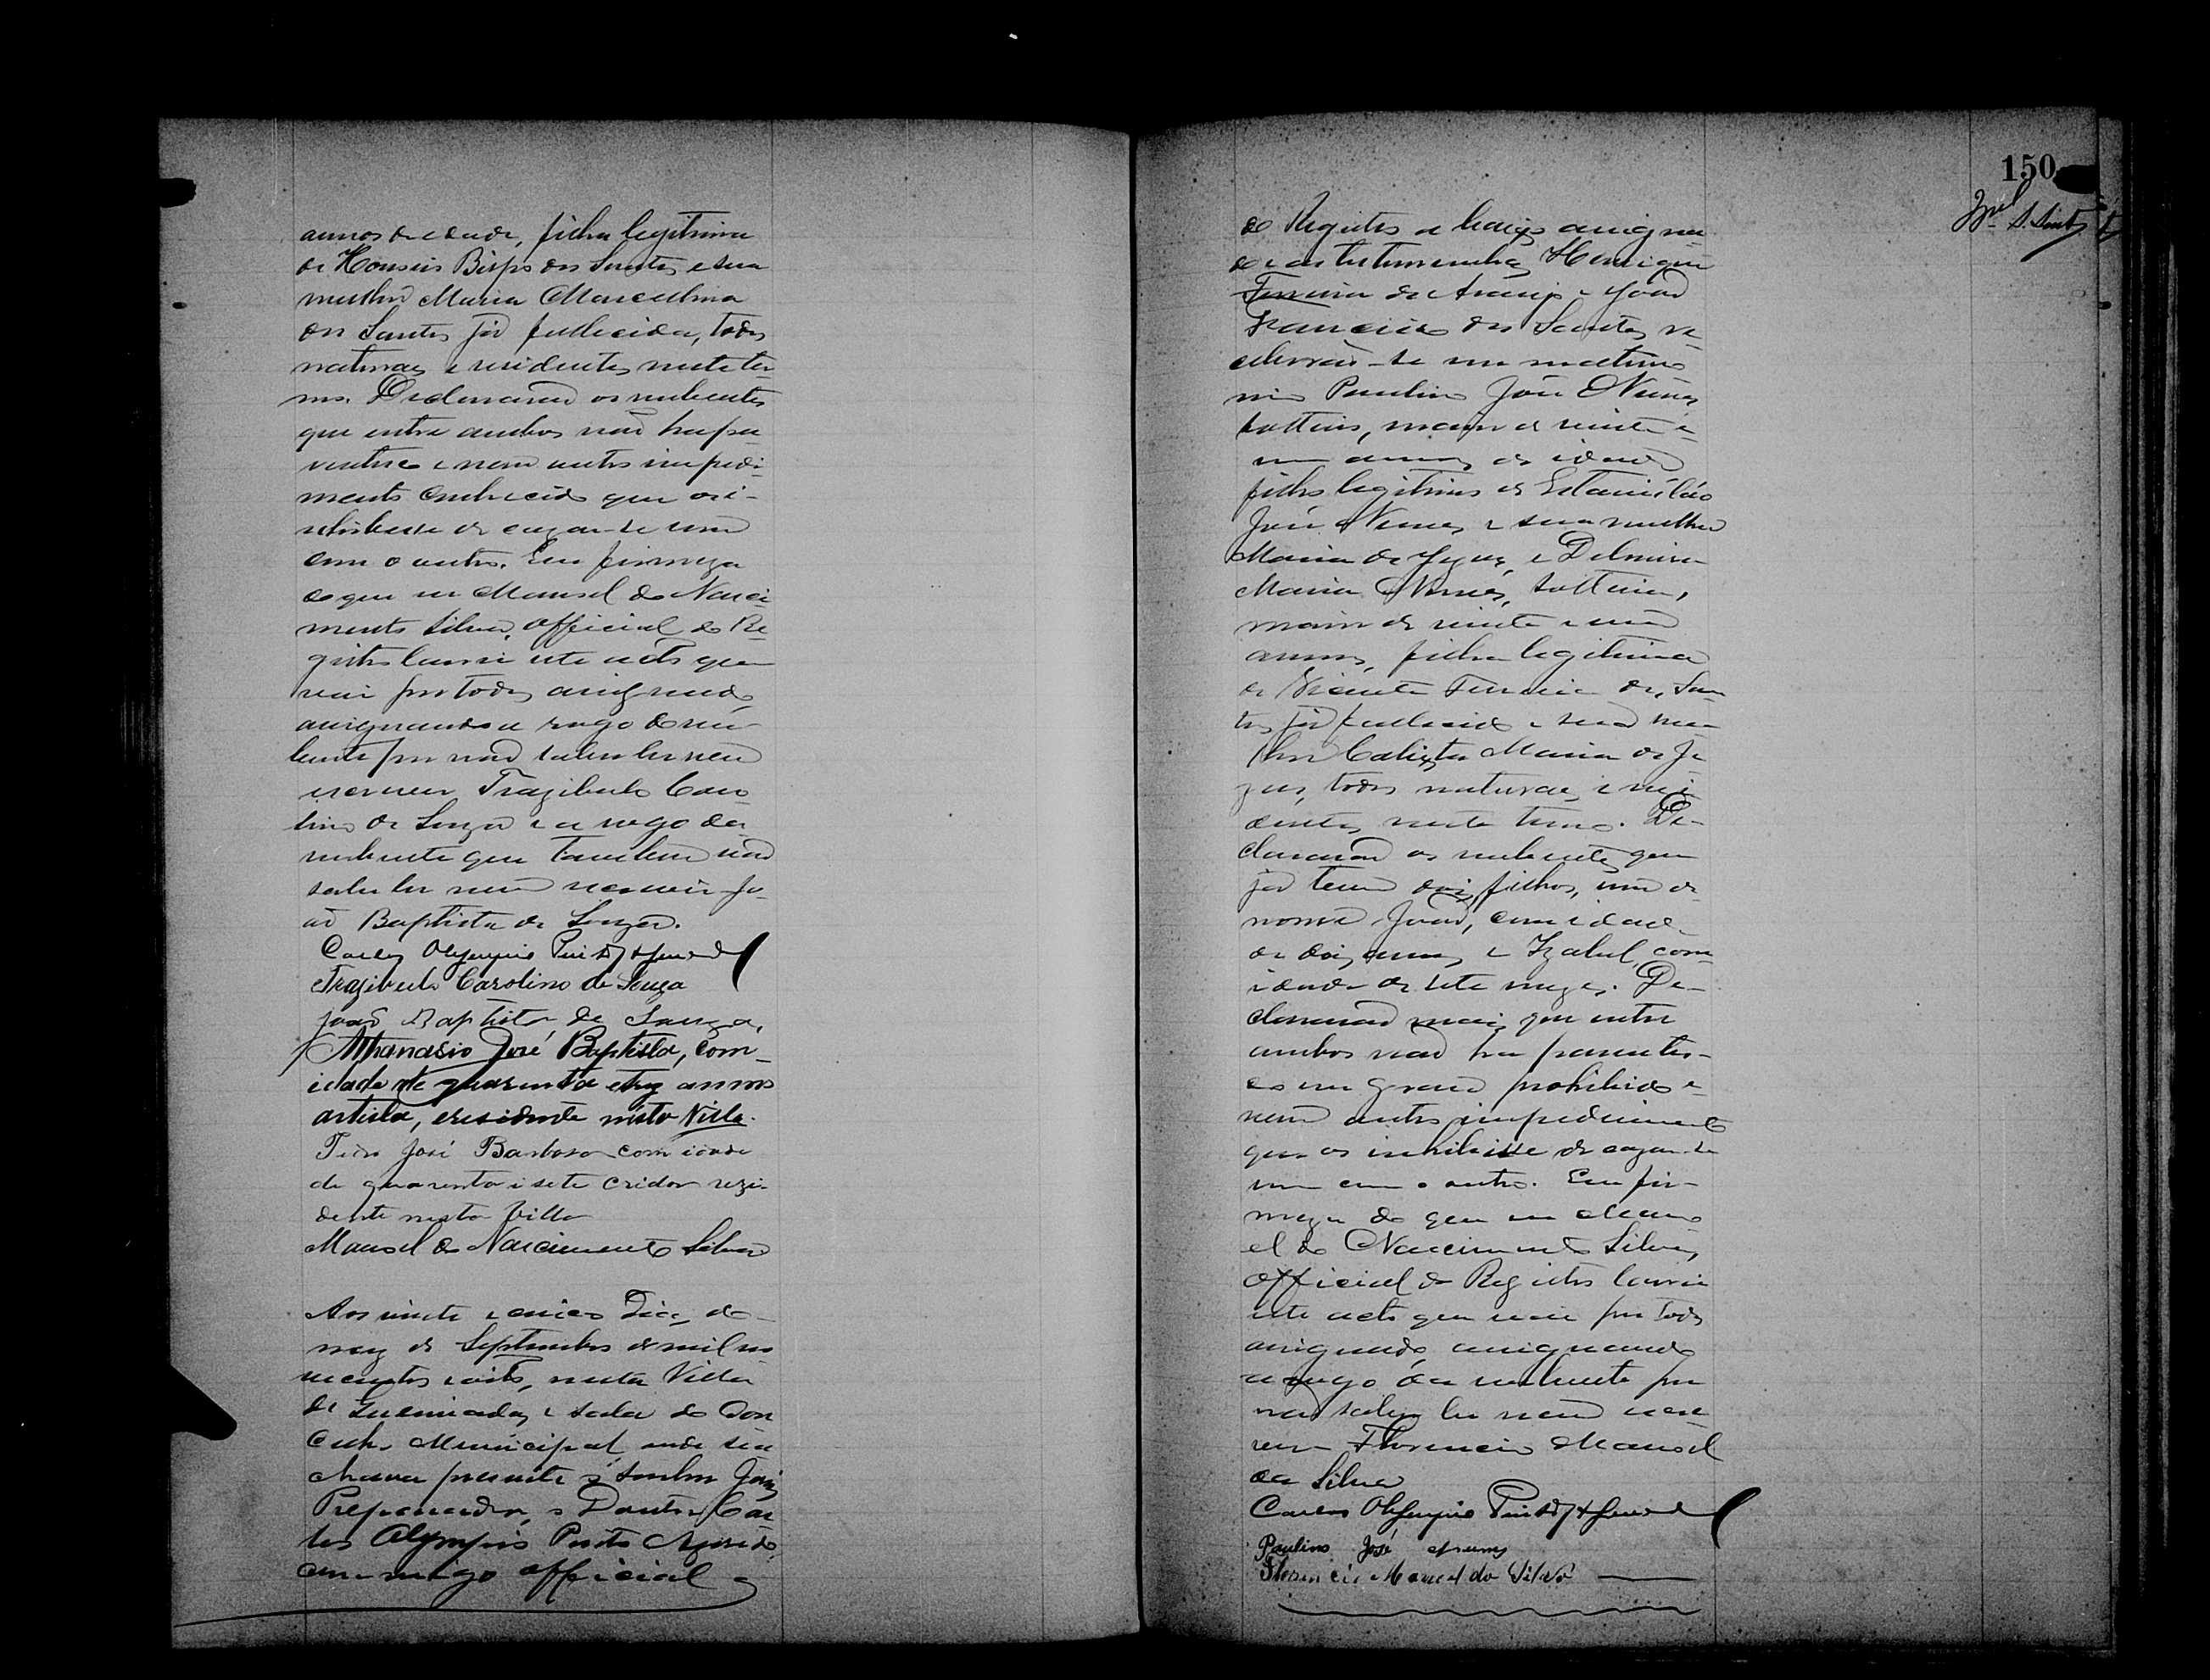 annos de edade, filha legitima
de Bispo dos Santos e sua
mulher Maria Marcellina
dos Santos já fallecida, todos
naturaes e residentes neste ter-
mo. Declararam os nubentes
que entre ambos não ha pa-
rentesco e nem outro impedi-
mento conhecido que os i-
nhibisse de cazar-se um
com o outro. Em firmeza
do que eu Manoel do Nasci-
mento Silva, official do Re-
gistro lavrei este acto que
vai por todos assignado,
assignando a rogo do nu-
bente por não saber ler nem
escrever Trazibulo Caro-
lino de Souza e a rogo da
nubente que tambem não
sabe ler nem escrever Jo-
ão Baptista de Souza.
Carlos Olympio
Trazibulo Carolino de Souza
João Baptista de Souza,
Athanasio José Baptista, com
idade de quarenta e trez annos
artista, e residente nesta Villa.
Pedro José Barboso com idade
de quarenta i sete criador rezi-
dente nesta Villa
Manoel do Nascimento Silva
Aos vinte e cinco dias do
mez de Septembro de mil no-
vecentos e oito, nesta Villa
de Queimadas e sala do Con-
celho Municipal onde se a-
chava presente o Senhor Juiz
Preparador, o Doutor Car-
los Olympio
commigo official
150
do Registro a baixo assigna-
do e as testemunhas Henrique
Ferreira de Araujo e João
Francisco dos Santos, re-
ceberão-se em matrimo-
nio Paulino José Nunes
solteiro, maior de vinte e
um annos de idade
filho legitimo de Estanisláo
José Nunes e sua mulher
Maria de Jezus, e Delmira
Maria Nunes, solteira,
maior de vinte e um
annos, filha legitima
de Vicente Ferreira dos San-
tos já fallecido e sua mu-
lher Calixta Maria de Je-
zus, todos naturaes e resi-
dentes neste termo. De-
clararam os nubentes que
já teem dois filhos, um de
nome João, com idade
de dois annos e Izabel, com
idade de sete mezes. De-
clararam mais que entre
ambos não ha parentes-
co em grau prohibido e
nem outro impedimento
que os inhibisse de cazar-se
um com o outro. Em fir-
meza do que eu Mano-
el do Nascimento Silva,
official do Registro lavrei
este acto que vai por todos
assignado, assignando
a rogo da nubente por
não saber ler nem escre-
ver Florencio Manoel
da Silva
Carlos Olympio
Paulino José Nunes
Florencio Manoel da Silva